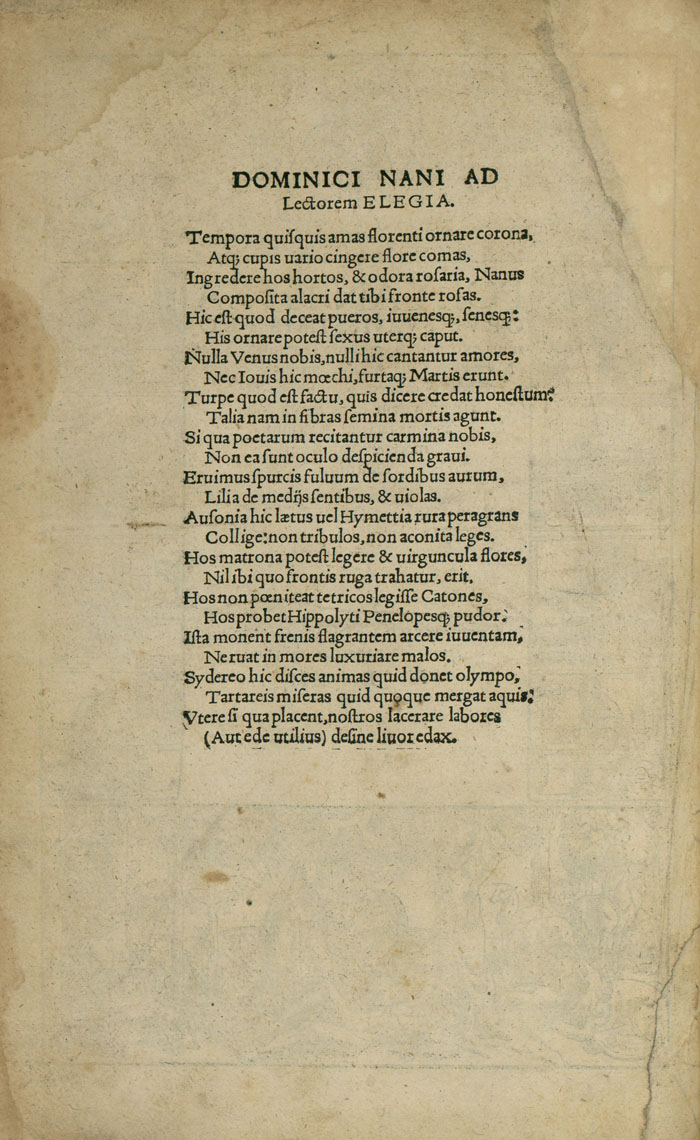 DOMINICI NANI AD
Lectorem ELEGIA.
Tempora quiſquis amas florenti ornare corona,
Atq; cupis uario cingere flore comas,
Ingredere hos hortos, & odora roſaria, Nanus
Compoſita alacri dat tibi fronte roſas.
Hic eſt quod deceat pueros, iuuenesq;, ſenesq;:
His ornare poteſt ſexus uterq; caput.
Nulla Venus nobis, nulli hic cantantur amores,
Nec Iouis hic mœchi, furtaq; Martis erunt.
Turpe quod eſt factu, quis dicere credat honeſtum?
Talia nam in fibras ſemina mortis agunt.
Si qua poetarum recitantur carmina nobis,
Non ea ſunt oculo deſpicienda graui.
Eruimus ſpurcis fuluum de ſordibus aurum,
Lilia de medijs ſentibus, & uiolas.
Auſonia hic lætus uel Hymettia rura peragrans
Collige: non tribulos, non aconita leges.
Hos matrona poteſt legere & uirguncula flores,
Nil ibi quo frontis ruga trahatur, erit.
Hos non pœniteat tetricos legiſſe Catones,
Hos probet Hippolyti Penelopesq; pudor.
Iſta monent frenis flagrantem arcere iuuentam,
Ne ruat in mores luxuriare malos.
Sydereo hic diſces animas quid donet olympo,
Tartareis miſeras quid quoque mergat aquis:
Vtere ſi qua placent, noſtros lacerare labores
(Aut ede utilius) deſine liuor edax.